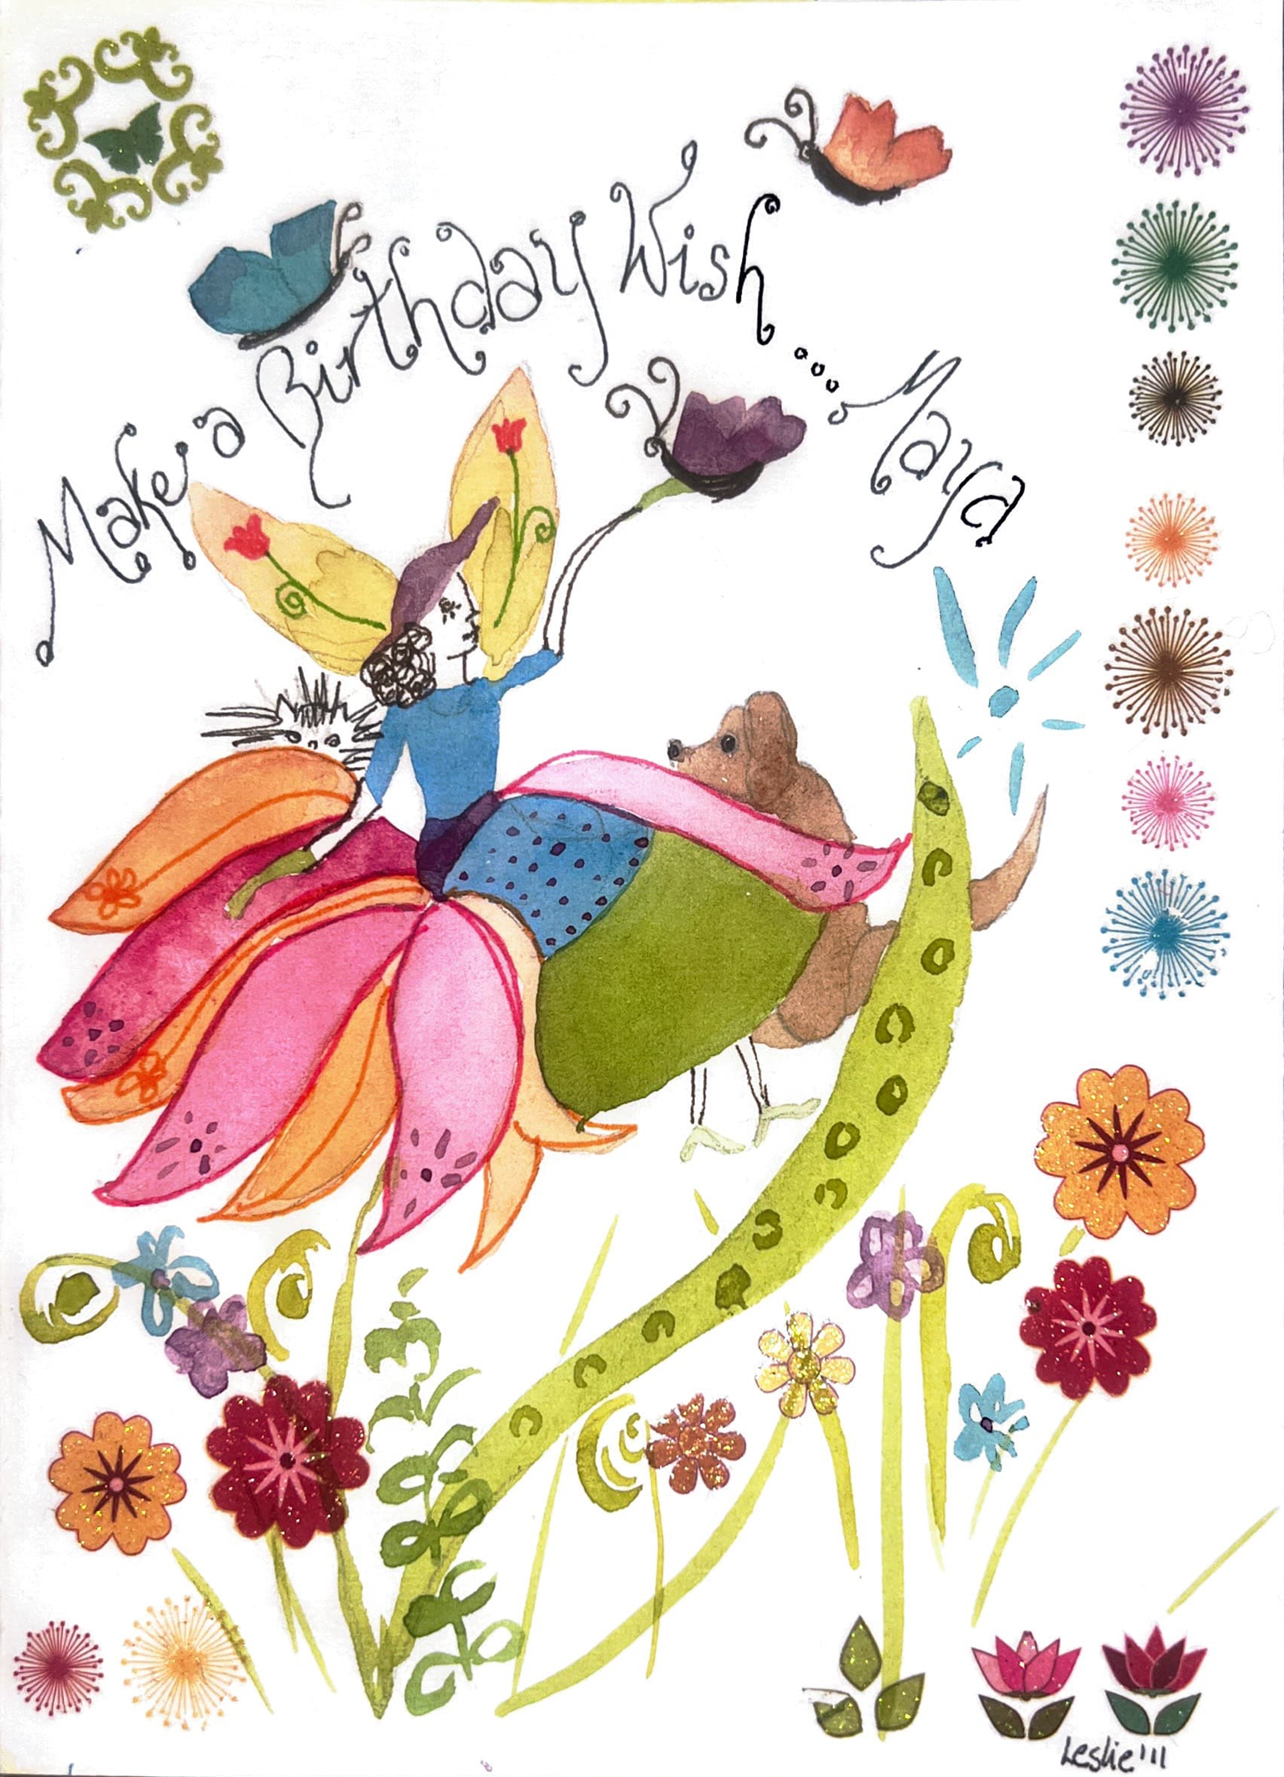 Make a Birthday Wish .... Maya
Leslie '11